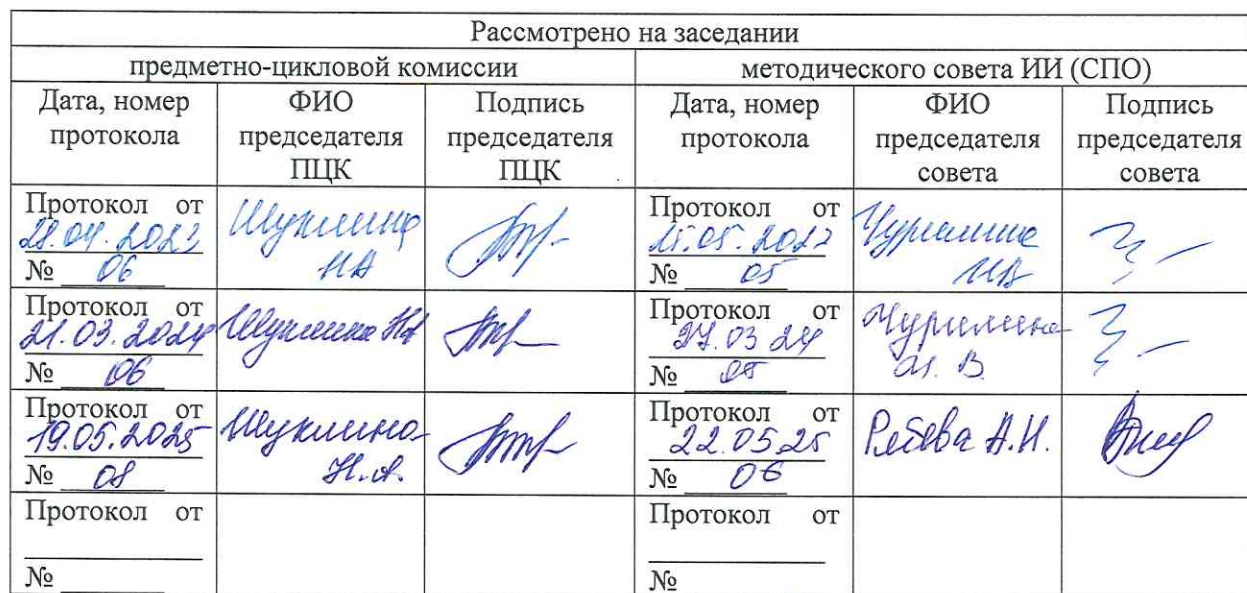 Рассмотрено на заседании
предметно-цикловой комиссии методического совета ИИ (СПО)
Дата, номер протокола ФИО председателя ПЦК Подпись председателя ПЦК Дата, номер протокола ФИО председателя совета Подпись председателя совета
Протокол от
№ 06
Шуклина
НА
Протокол от
№ 05
Чурилина
ИВ
Протокол от
21.03.2024
№ 06
Шуклина НА
Протокол от
27.03 24
№ 05
Чурилина
И. В.
Протокол от
19.05.2025
№ 08
Шуклина
Н.А.
Протокол от
22.05.25
№ 06
А.Н.
Протокол от
№
Протокол от
№